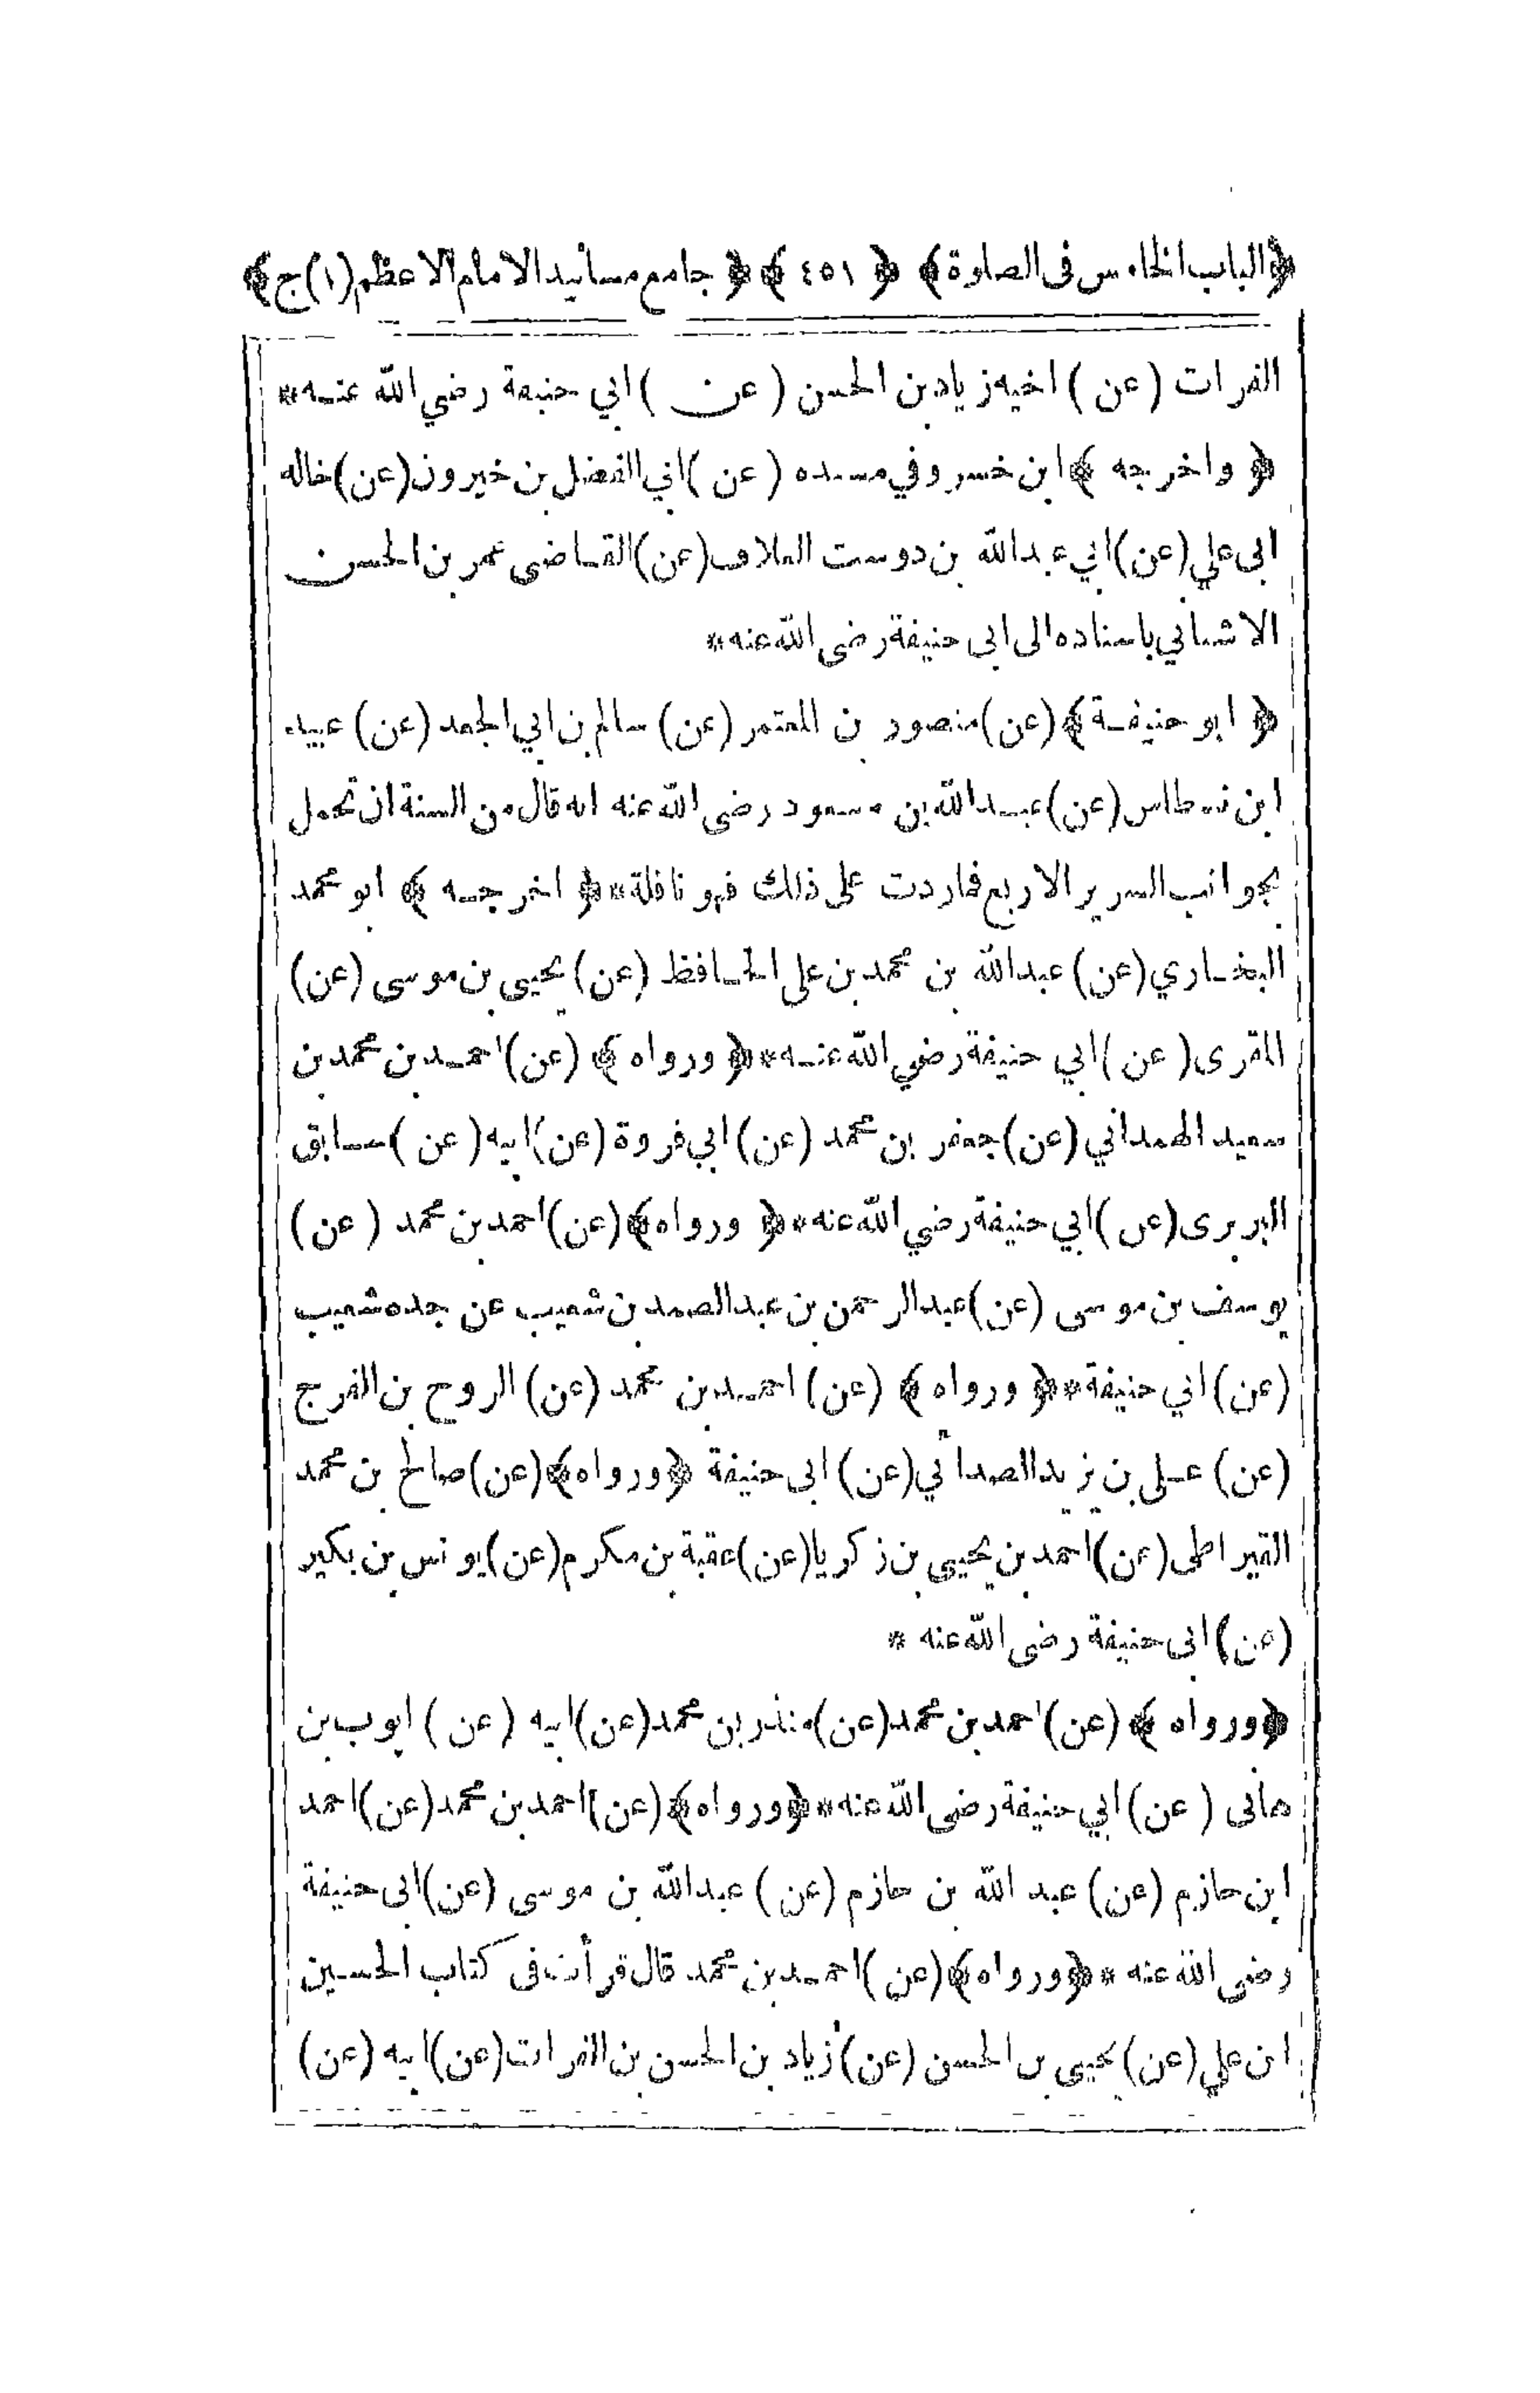 ﴿الباب الخامس فى الصلوة﴾ ﴿ ٤٥١ ﴾ ﴿ جامع مسانيد الامام الاعظم (١)ج﴾
الفرات (عن) اخيه زياد بن الحسن (عن) ابي حنيفة رضي الله عنه *
﴿ واخرجه ﴾ ابن خسرو في مسنده (عن) ابي الفضل بن خيرون (عن) خاله
ابى علي (عن) ابي عبد الله بن دوست العلاف (عن) القاضى عمر بن الحسن
الاشناني باسناده الى ابى حنيفة رضى الله عنه *
﴿ ابو حنيفة ﴾ (عن) منصور بن المعتمر (عن) سالم بن ابي الجعد (عن) عبيد
ابن نسطاس (عن) عبد الله بن مسعود رضى الله عنه انه قال من السنة ان تحمل
بجوانب السرير الاربع فمازدت على ذلك فهو نافلة * ﴿ اخرجه ﴾ ابو محمد
البخاري (عن) عبد الله بن محمد بن على الحافظ (عن) يحيى بن موسى (عن)
المقرى (عن) ابي حنيفة رضي الله عنه * ﴿ ورواه ﴾ (عن) احمد بن محمد بن
سعيد الهمداني (عن) جعفر بن محمد (عن) ابي فروة (عن) ابيه (عن) سابق
البربرى (عن) ابي حنيفة رضي الله عنه * ﴿ ورواه ﴾ (عن) احمد بن محمد (عن)
يوسف بن موسى (عن) عبد الرحمن بن عبد الصمد بن شعيب عن جده شعيب
(عن) ابي حنيفة * ﴿ ورواه ﴾ (عن) احمد بن محمد (عن) الروح بن الفرج
(عن) على بن يزيد الصدائي (عن) ابى حنيفة ﴿ورواه﴾ (عن) صالح بن محمد
القيراطى (عن) احمد بن يحيى بن زكريا (عن) عقبة بن مكرم (عن) يونس بن بكير
(عن) ابى حنيفة رضى الله عنه *
﴿ورواه ﴾ (عن) احمد بن محمد (عن) منذر بن محمد (عن) ابيه (عن) ايوب بن
هانى (عن) ابي حنيفة رضى الله عنه * ﴿ورواه﴾ (عن) احمد بن محمد (عن) احمد
ابن حازم (عن) عبد الله بن حازم (عن) عبد الله بن موسى (عن) ابى حنيفة
رضى الله عنه * ﴿ورواه﴾ (عن) احمد بن محمد قال قرأت فى كتاب الحسين
ابن علي (عن) يحيى بن الحسن (عن) زياد بن الحسن بن الفرات (عن) ابيه (عن)